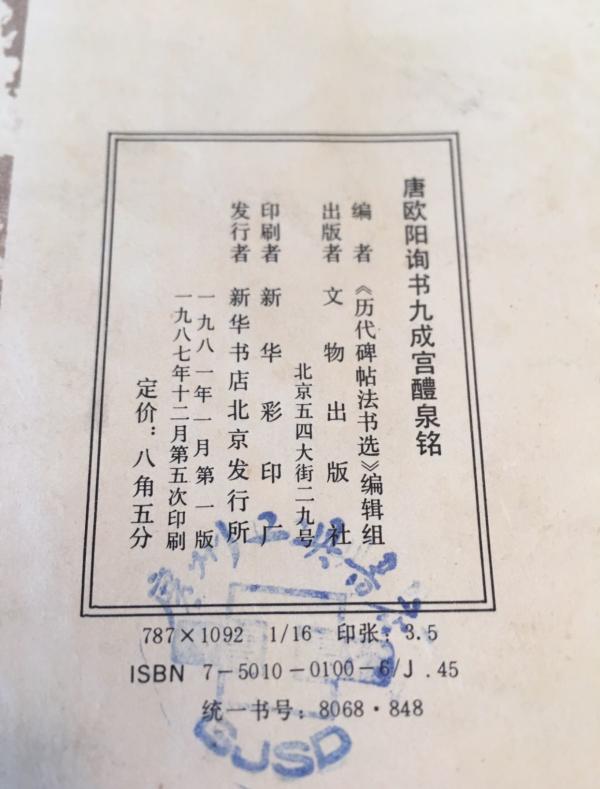 唐欧阳询书九成宫醴泉铭
编者 《历代碑帖法书选》编辑组
出版者 文物出版社
北京五四大街二九号
印刷者 新华彩印厂
发行者 新华书店北京发行所
一九八一年一月第一版
一九八七年十二月第五次印刷
定价：八角五分
787×1092 1/16 印张：3.5
ISBN 7-5010-0100-6/J .45
统一书号：8068·848
GJSD